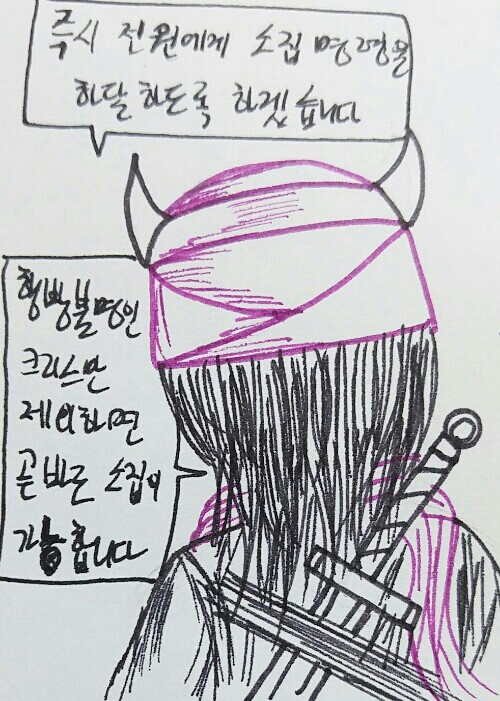 즉시 전원에게 소집 명령을
하달 하도록 하겠습니다
행방불명인
크리스만
제외하면
곧바로 소집이
가능합니다